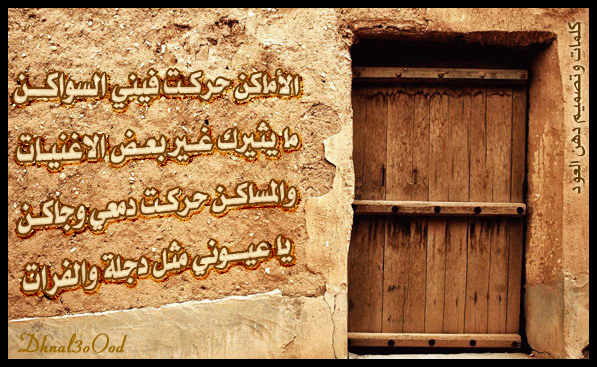 الاماكن حركت فيني السواكن
ما يثيرك غير بعض الاغنيات
والمساكن حركت دمعي وجاكن
يا عيوني مثل دجلة والفرات
كلمات وتصميم دهن العود
Dhnal3oOod